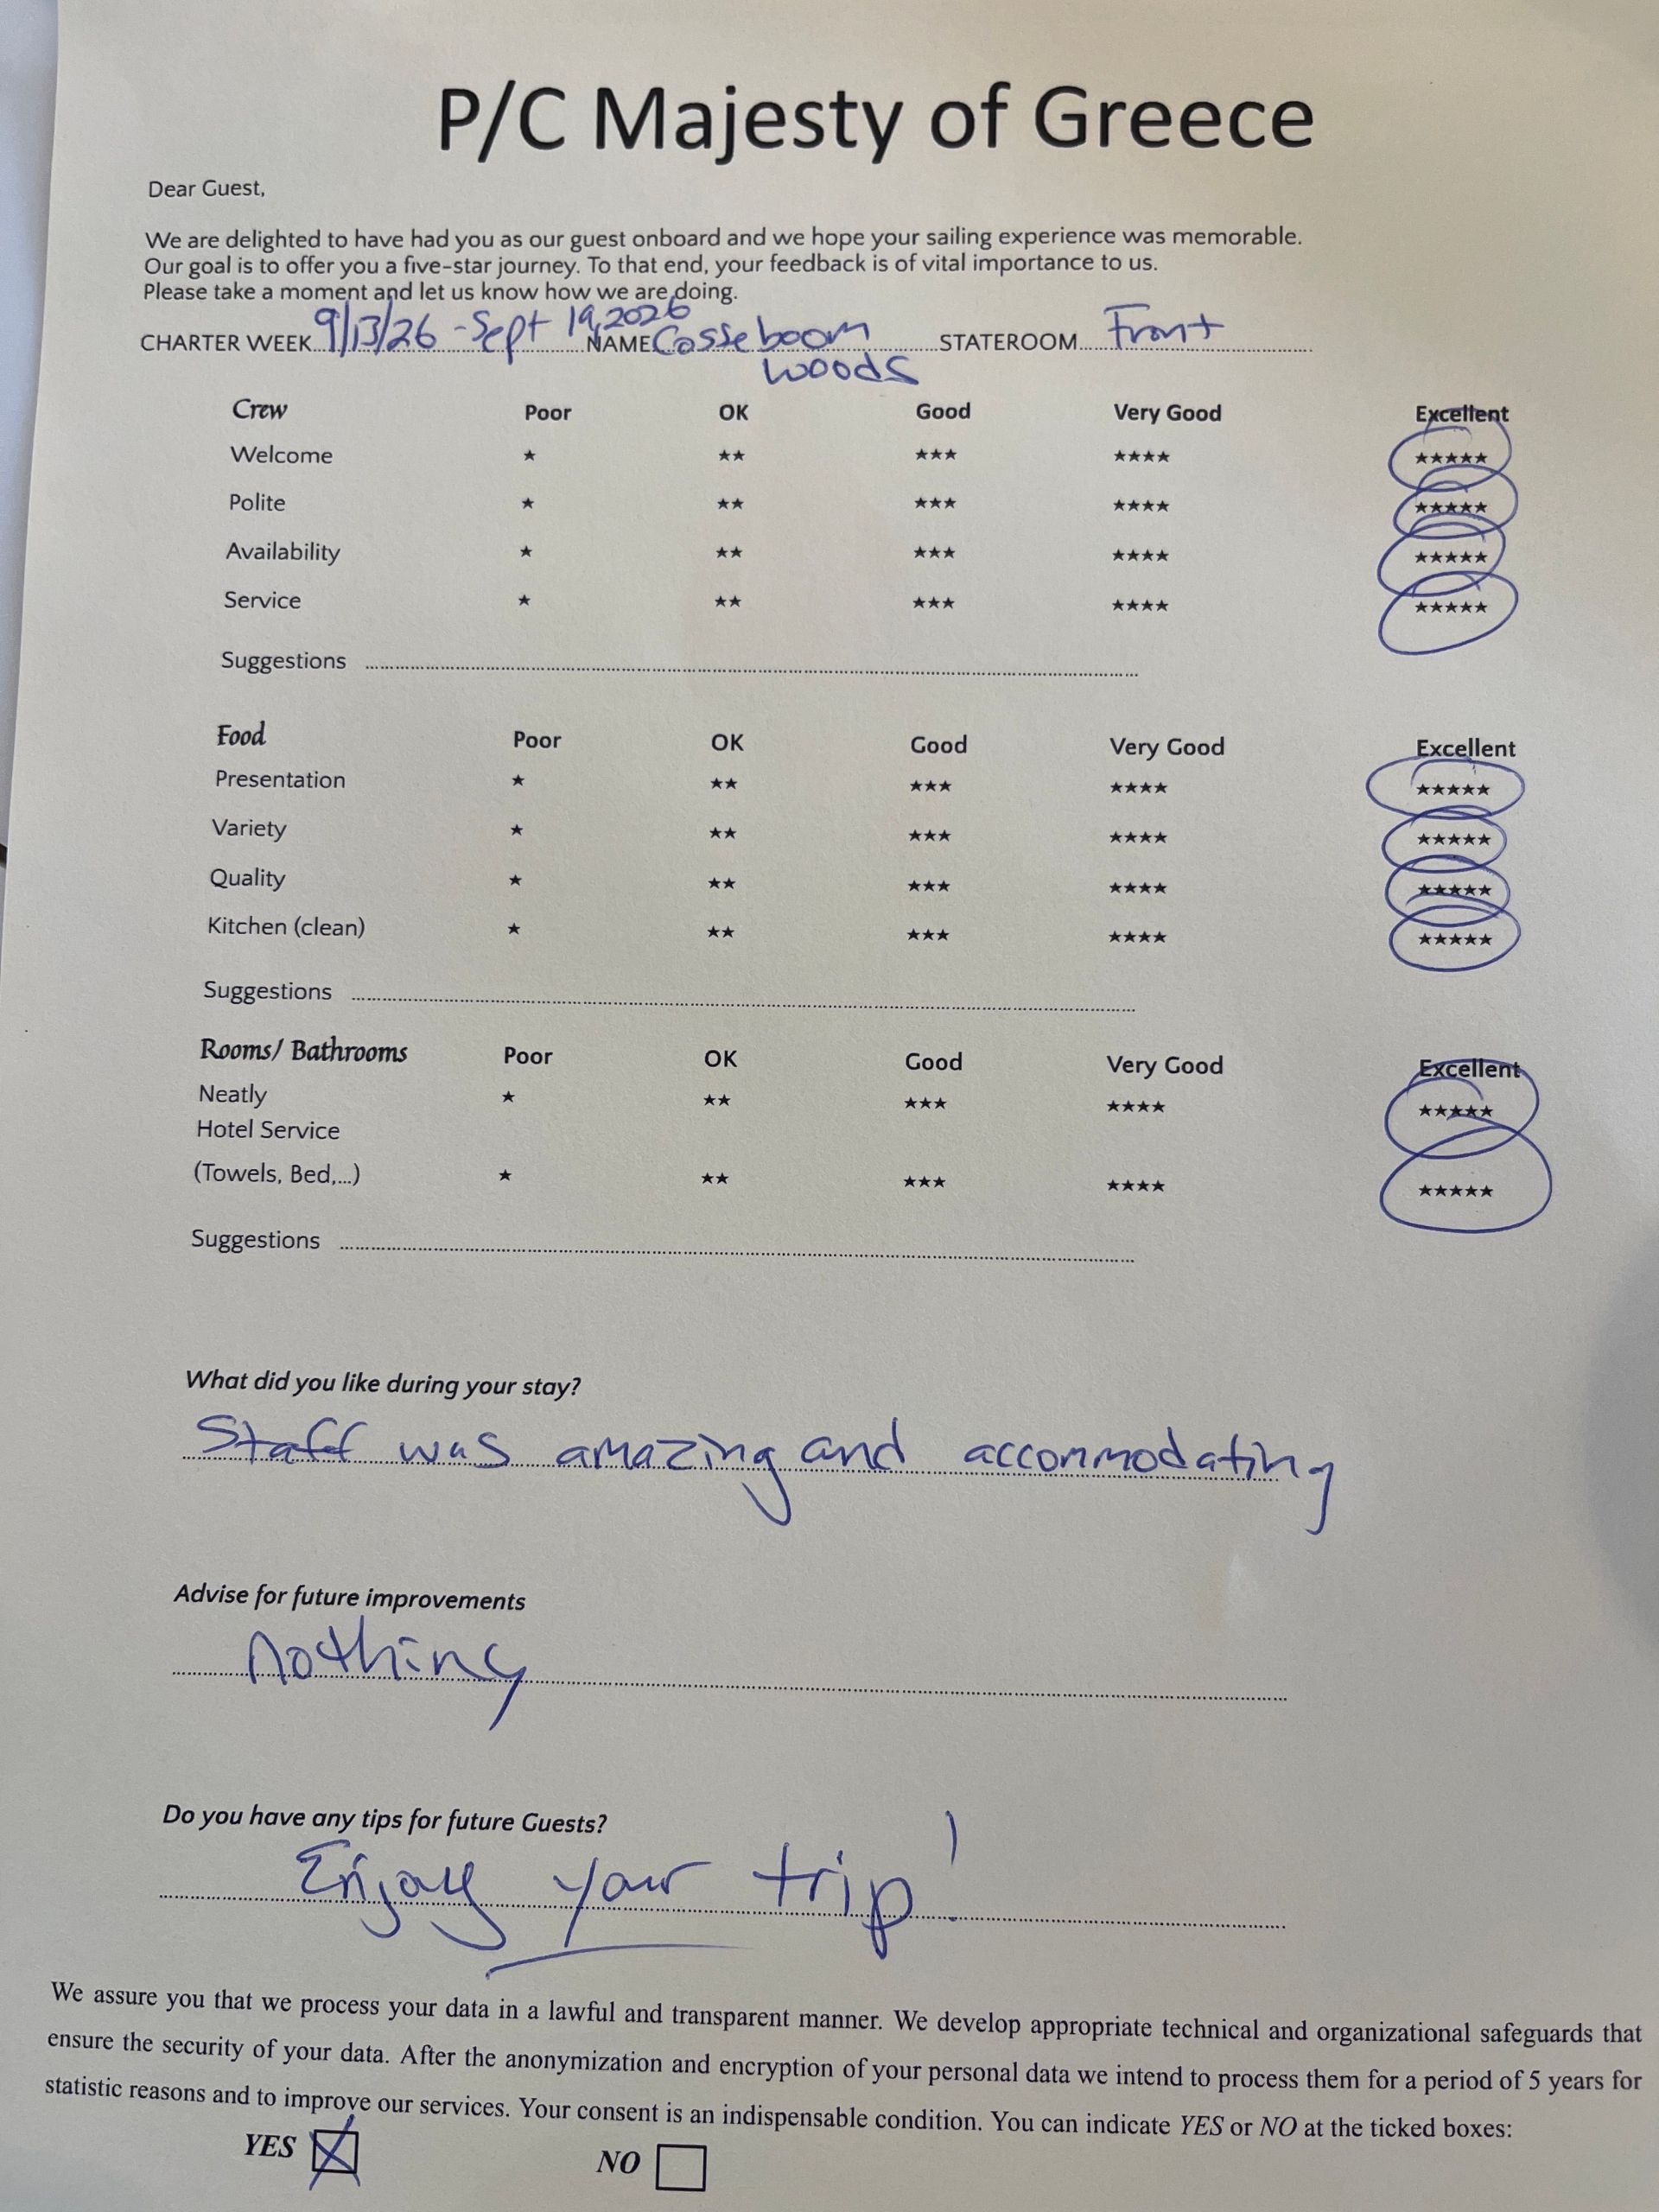 P/C Majesty of Greece
Dear Guest,
We are delighted to have had you as our guest onboard and we hope your sailing experience was memorable.
Our goal is to offer you a five-star journey. To that end, your feedback is of vital importance to us.
Please take a moment and let us know how we are doing.
CHARTER WEEK 9/13/26 - Sept 19, 2026 NAME Casseboom STATEROOM Front
Woods
Crew Poor OK Good Very Good Excellent
Welcome ★ ★★ ★★★ ★★★★ ★★★★★
Polite ★ ★★ ★★★ ★★★★ ★★★★★
Availability ★ ★★ ★★★ ★★★★ ★★★★★
Service ★ ★★ ★★★ ★★★★ ★★★★★
Suggestions
Food Poor OK Good Very Good Excellent
Presentation ★ ★★ ★★★ ★★★★ ★★★★★
Variety ★ ★★ ★★★ ★★★★ ★★★★★
Quality ★ ★★ ★★★ ★★★★ ★★★★★
Kitchen (clean) ★ ★★ ★★★ ★★★★ ★★★★★
Suggestions
Rooms/ Bathrooms Poor OK Good Very Good Excellent
Neatly ★ ★★ ★★★ ★★★★ ★★★★★
Hotel Service
(Towels, Bed,...) ★ ★★ ★★★ ★★★★ ★★★★★
Suggestions
What did you like during your stay?
Staff was amazing and accommodating
Advise for future improvements
nothing
Do you have any tips for future Guests?
Enjoy your trip!
We assure you that we process your data in a lawful and transparent manner. We develop appropriate technical and organizational safeguards that
ensure the security of your data. After the anonymization and encryption of your personal data we intend to process them for a period of 5 years for
statistic reasons and to improve our services. Your consent is an indispensable condition. You can indicate YES or NO at the ticked boxes:
YES NO